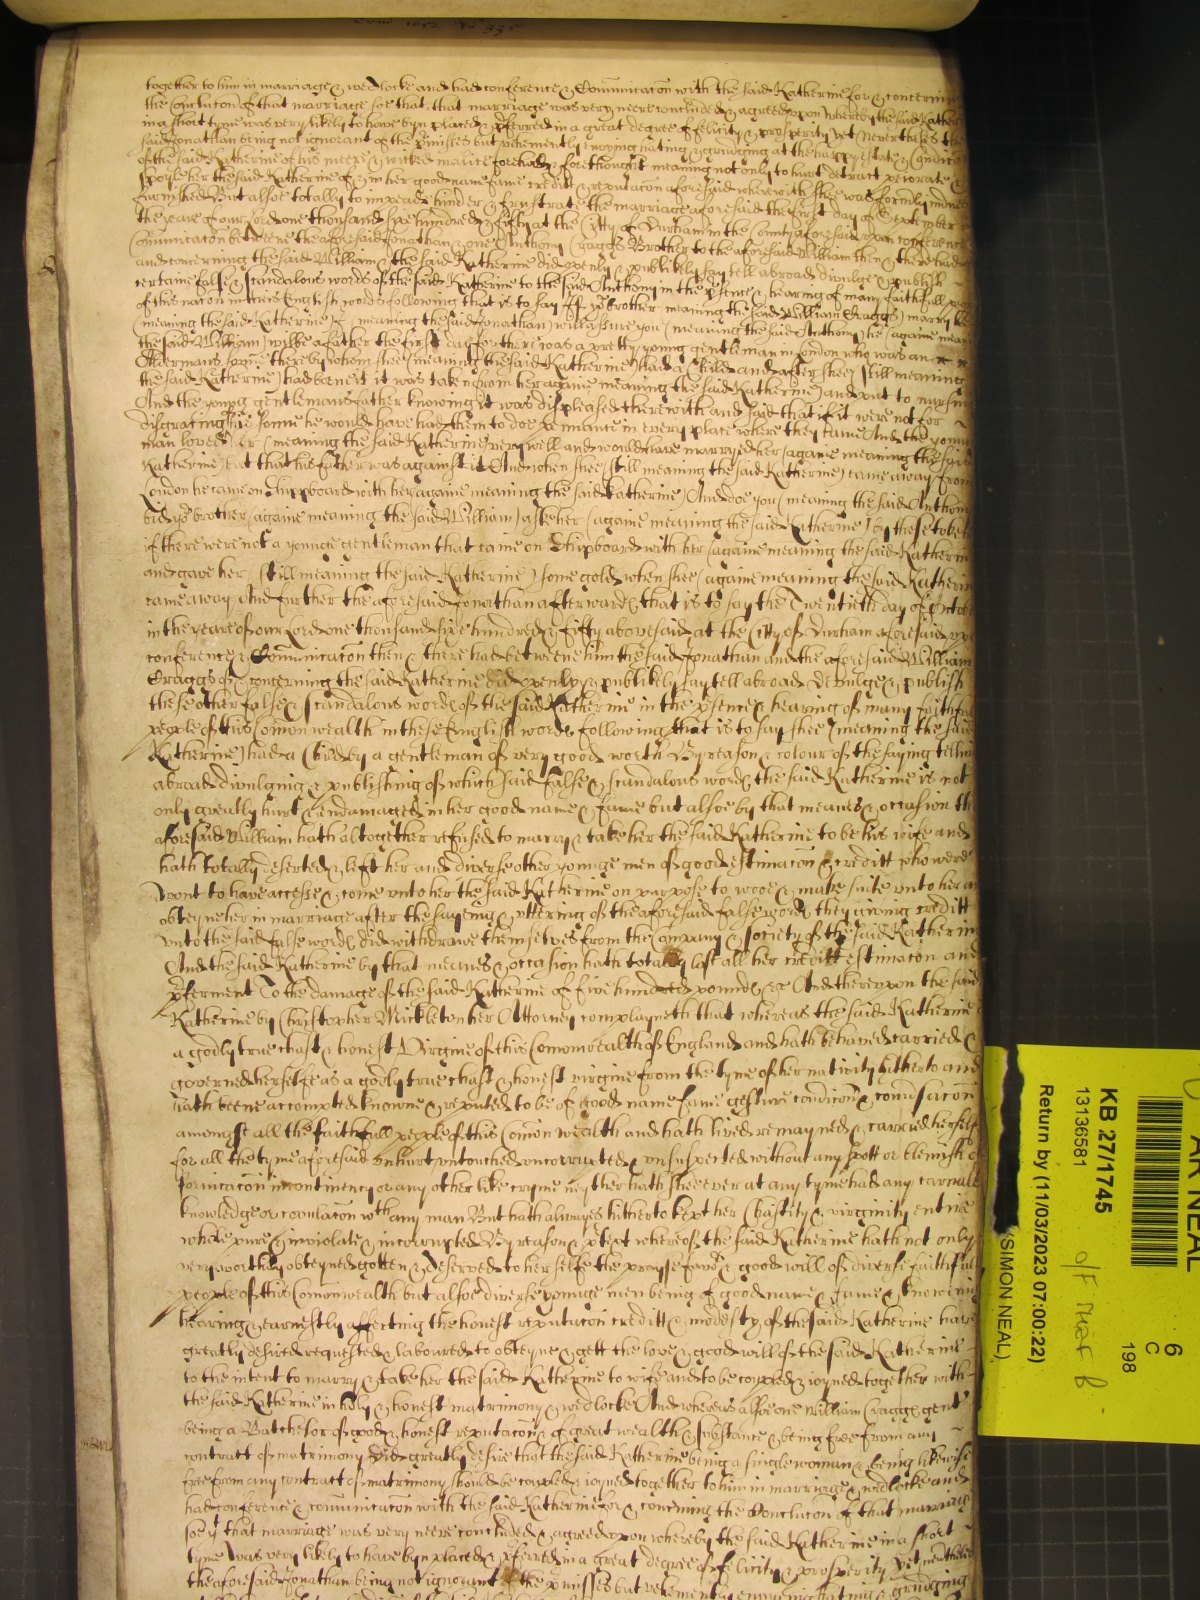 together to him in marriage & wedlocke and had conference & Com̄unicac̄on with the said Katherine for & concerning
the Conclusion of that marriage soe that, that marriage was very neere concluded & agreed upon whereby the said Kather
in a short tyme was very likely to have byn placed & p̱ferred in a great degree of felicity & prosperity yet neverthelesse the
said Jonathan being not ignorant of the p̱misses but vehemently envying hating & grudging at the happy estate &
of the said Katherine of his meere & wicked malice forehad & forethought meaning not only to hurt detract peiorate &
spoyle her the said Katherine of & in her good name fame creditt & reputac̄on aforesaid wherewith shee was form̄ly
furnished But alsoe totally to impeach hinder & frustrate the marriage aforesaid the first day of September in
the yeare of our Lord one thousand six hundred & fifty at the Citty of Durham in the County aforesaid upon conference
Com̄unicac̄on betweene the aforesaid Jonathan & one Anthony Craggs Brother to the aforesaid William then & there had
and concerning the said William & the said Katherine did openly & publikely say tell abroad divulge & publish
certaine false & scandalous words of the said Katherine to the said Anthony in the p̱sence & hearing of many faithfull
of this nac̄on in theis English words following that is to say If yoͬ brother meaning the said William Craggs) marry her
(meaning the said Katherine) I (meaning the said Jonathan) will assure you (meaning the said Anthony) he (againe meaning
the said William) wilbe a father the first day for there was a pretty young gentleman in London who was an
Aldermans sonne there by whom shee (meaning the said Katherine) had a Child and after shee (still meaning
the said Katherine) had borne it it was taken from her againe meaning the said Katherine) and put to nursing
And the young gentlemans father knowing it was displeased therewith and said that if it were not for
disgracing his sonne he would have had them to doe pennance in every place where they came And the young
man loved her (meaning the said Katherine very well and would have marryed her (againe meaning the said
Katherine) but that his father was against it And when shee (still meaning the said Katherine) came away from
London he came on shippboard with her againe meaning the said Katherine) And doe you (meaning the said Anthony
bid yoͬ brother (againe meaning the said William) aske her (againe meaning the said Katherine) by these
if there were not a younge gentleman that came on Shipboard with her (againe meaning the said Katherin
and gave her (still meaning the said Katherine) some gold when shee (againe meaning the said Katherin
came away And further the aforesaid Jonathan afterward, that is to say the Twentieth day of October
in the yeare of our Lord one thousand six hundred & fifty abovesaid at the Citty of Durham aforesaid upon
conference & Com̄unicac̄on then & there had betweene him the said Jonathan and the aforesaid William
Craggs of & concerning the said Katherine did openly & publikely say tell abroad devulge & publish
these other false & scandalous words of the said Katherine in the p̱sence & hearing of many faithfull
people of this Com̄onwealth in these English words following that is to say shee (meaning the said
Katherine) had a Child by a gentleman of very good worth By reason & colour of the saying telling
abroad divulging & publishing of which said false & scandalous words the said Katherine is not
only greatly hurt & endamaged in her good name & fame but alsoe by that meanes & occasion the
aforesaid William hath altogether refused to marry & take her the said Katherine to be his wife and
hath totally deserted & left her and diverse other younge men of good estimac̄on & creditt who were
wont to have accesse & come unto her the said Katherine on purpose to wooe & make suite unto her and
obteyne her in marriage after the sayeing & uttering of the aforesaid false words they giving creditt
unto the said false words did withdrawe themselves from the Company & society of the said Katherin
And the said Katherine by that meanes & occasion hath totally lost all her creditt estimac̄on and
p̱ferment To the damage of the said Katherine of five hundred pounds &c And thereupon the said
Katherine by Christopher Mickleton her Attorney complayneth that whereas the said Katherine is
a godly true chast & honest Virgine of this Com̄onwealth of England and hath behaved carried &
governed herselfe as a godly true chast & honest virgine from the tyme of her nativity hitherto and
hath beene accompted knowne & reputed to be of good name fame gesture condic̄on & conv̄sac̄on
amongst all the faithfull people of this Com̄on wealth and hath lived remayned & carried herself
for all the tyme aforesaid unhurt untouched uncorrupted & unsuspected without any spott or blemish of
fornicac̄on incontinency or any other like cryme neyther hath shee ever at any tyme had any carnall
knowledge or copulac̄on wth any man But hath alwayes hitherto kept her Chastity & virginity entire
whole pure & inviolate & incorrupted By reason & p̱text whereof the said Katherine hath not only
very worthily obteyned gotten & deserved to her selfe the prayse favoͬ & good will of diverse faithfull
people of this Com̄onwealth but alsoe diverse younge men being of good name & fame & knowing
hearing & earnestly affecting the honest reputac̄on creditt & modesty of the said Katherine have
greatly desired requested & laboured to obteyne & gett the love & good will of the said Katherine
to the intent to marry & take her the said Katherine to wife and to be coupled & ioyned together with
the said Katherine in holy & honest matrimony & wedlocke And whereas alsoe one William Craggs gent
being a Batchelor of good & honest reputac̄on & of great wealth & substance & being free from any
contract of matrimony did greatly desire that the said Katherine being a single woman & being likewise
free from any contract of matrimony should be coupled & ioyned together to him in marriage & wedlocke and
had conference & com̄unicac̄on with the said Katherine for & conc̄ning the Conclusion of that marriage
soe yt that marriage was very neere concluded & agreed upon whereby the said Katherine in a short
tyme was very likely to have byn placed & p̱ferred in a great degree of felicity & prosperity Yet neverthelesse
the aforesaid Jonathan being not ignorant of the p̱misses but vehemently envying hating & grudging
6
C
198
KB 27/1745
13136581
Return by (11/03/2023 07:00:22)
(SIMON NEAL)